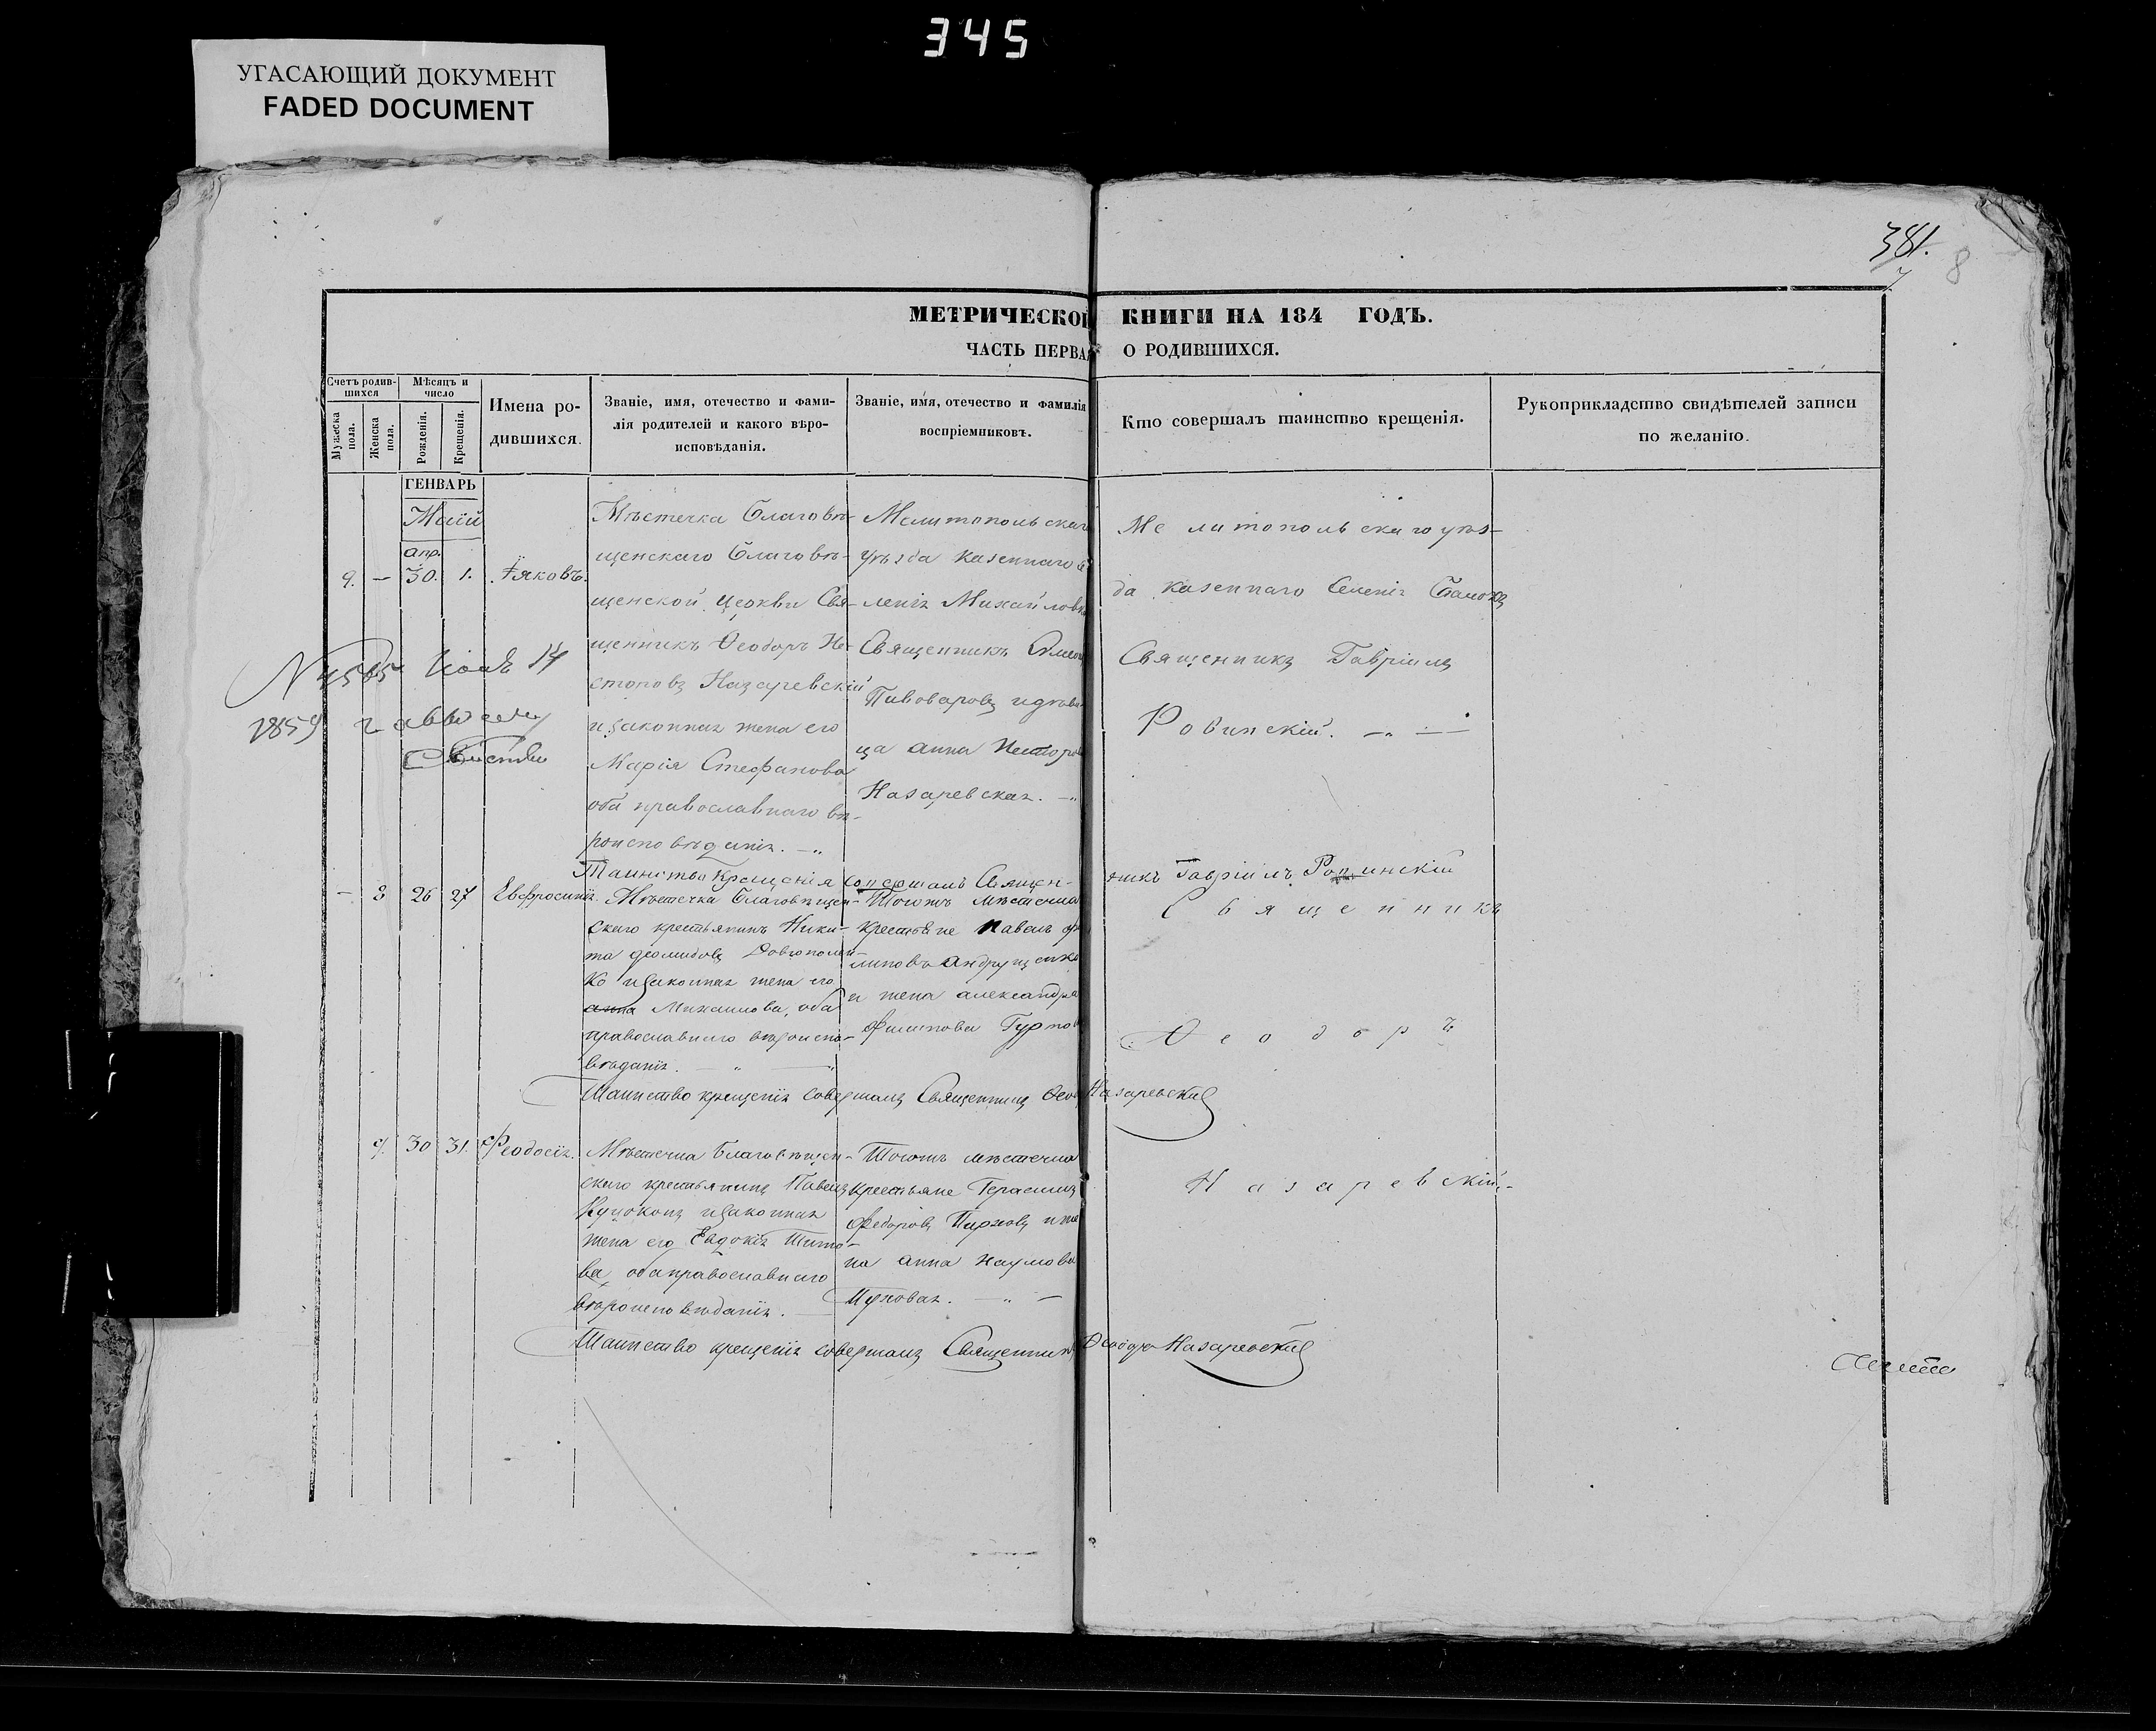 345
УГАСАЮЩИЙ ДОКУМЕНТ
FADED DOCUMENT
381.
8
МЕТРИЧЕСКОЙ КНИГИ НА 184 ГОДЪ.
ЧАСТЬ ПЕРВАЯ О РОДИВШИХСЯ.
Счетъ родив-
шихся
Мужеска пола.
Женска пола.
Мѣсяцъ и
число
Рожденія.
Крещенія.
Имена ро-
дившихся.
Званіе, имя, отечество и фами-
лія родителей и какого вѣро-
исповѣданія.
Званіе, имя, отечество и фамилія
воспріемниковъ.
Кто совершалъ таинство крещенія.
Рукоприкладство свидѣтелей записи
по желанію.
ГЕНВАРЬ
Маій
апр.
9. — 30. 1. Іяковъ.
Мѣстечка Благовѣ-
щенскаго Благовѣ-
щенской церкви Свя-
щенникъ Феодоръ Не-
сторовъ Назаревскій
и законная жена его
Марія Стефанова
оба православнаго вѣ-
роисповѣданія.
Мелитопольскаго
уѣзда казеннаго се
ленія Михайловки
Священникъ
Пивоваровъ и дѣви
ца анна Несторов
Назаревская.
Мелитопольскаго уѣз-
да казеннаго Селенія
Священникъ Гавріилъ
Робинскій.
14
1859
Таинство Крещенія совершалъ Священ-
никъ Гавріилъ Робинскій
— 8 26 27 Евфросинія.
Мѣстечка Благовѣщен-
скаго крестьянинъ Ники-
та
ко и законная жена его
анна Михаилова, оба
православнаго вѣроиспо-
вѣданія.
Тогожъ мѣстечка
крестьяне Павелъ
липовъ андрущенко
и жена александра
Филипова
Таинство крещенія совершалъ Священникъ Феодоръ Назаревскій
Священникъ
Феодоръ
Назаревскій.
9. 30 31. Феодосія.
Мѣстечка Благовѣщен-
скаго крестьянинъ Павелъ
и законная
жена его Евдокія Тито-
ва, оба православнаго
вѣроисповѣданія.
Тогожъ мѣстечка
крестьяне Герасимъ
Федоровъ и же
на анна Наумова
Таинство крещенія совершалъ Священникъ Феодоръ Назаревскій